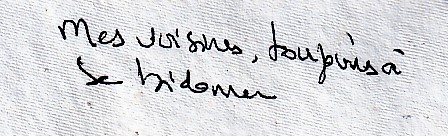 Mes voisins, toujours à
se bidonner